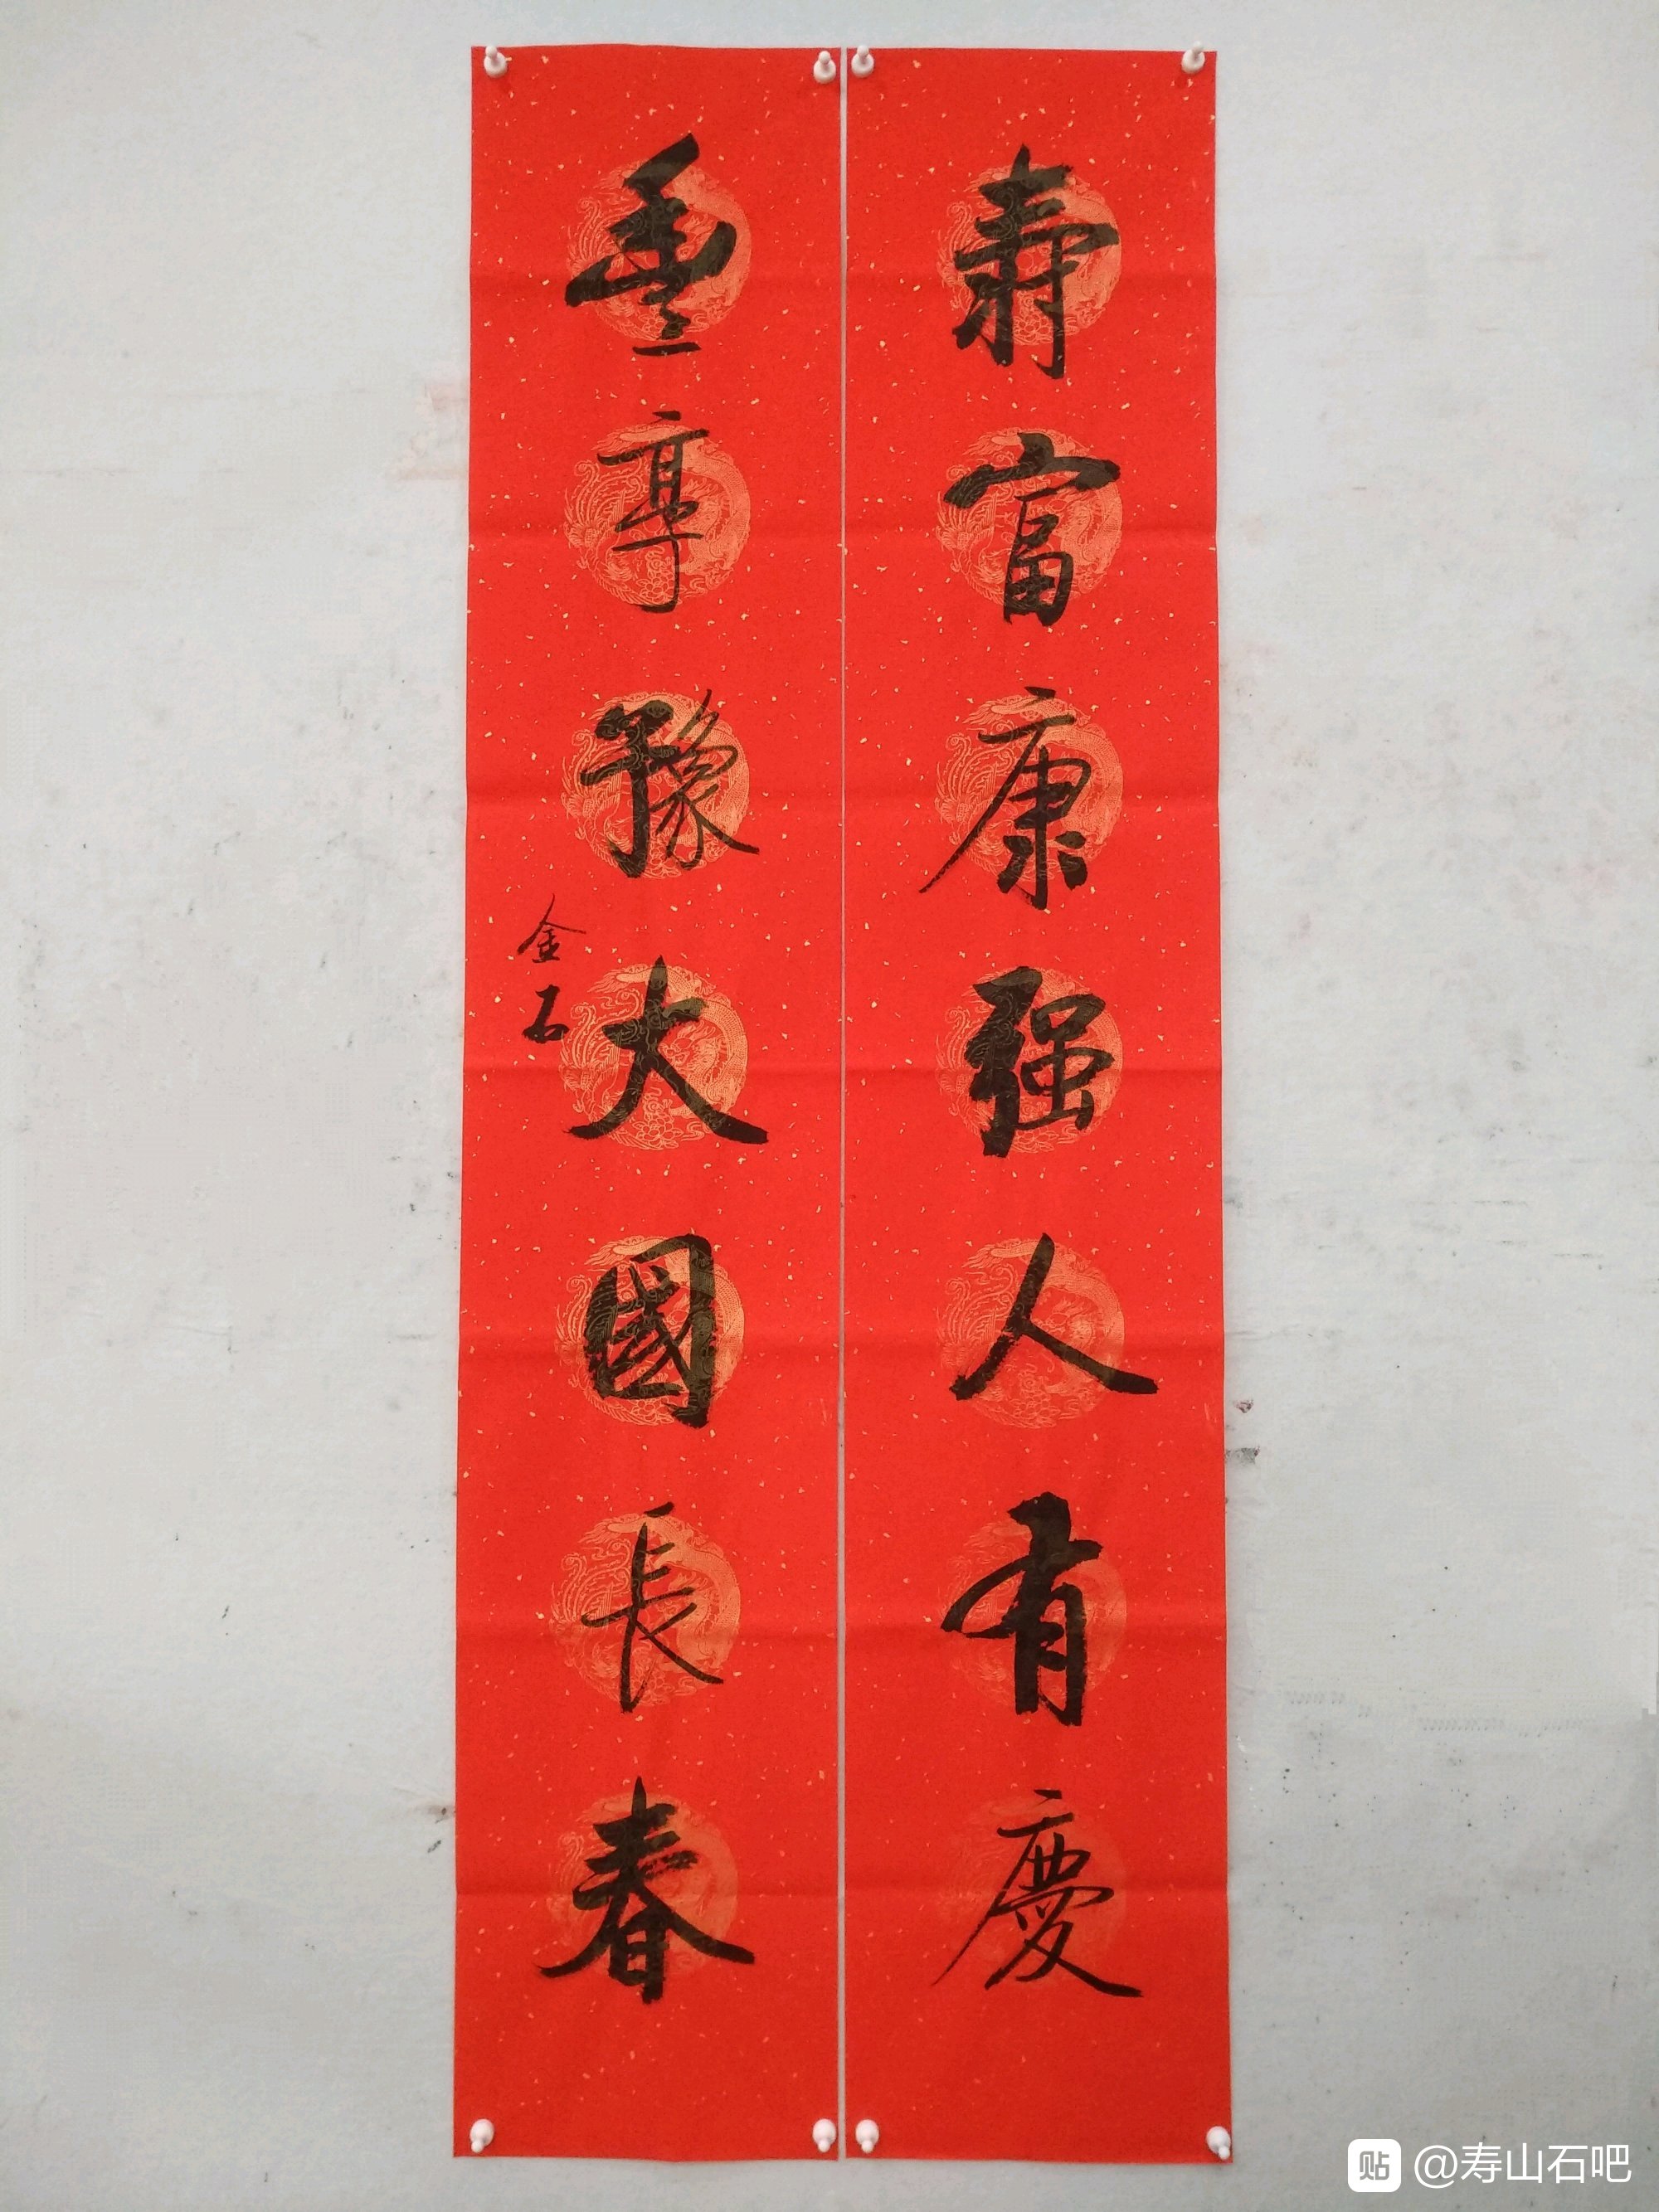 壽富康强人有慶
豐亨豫大國長春
金石
貼 @寿山石吧